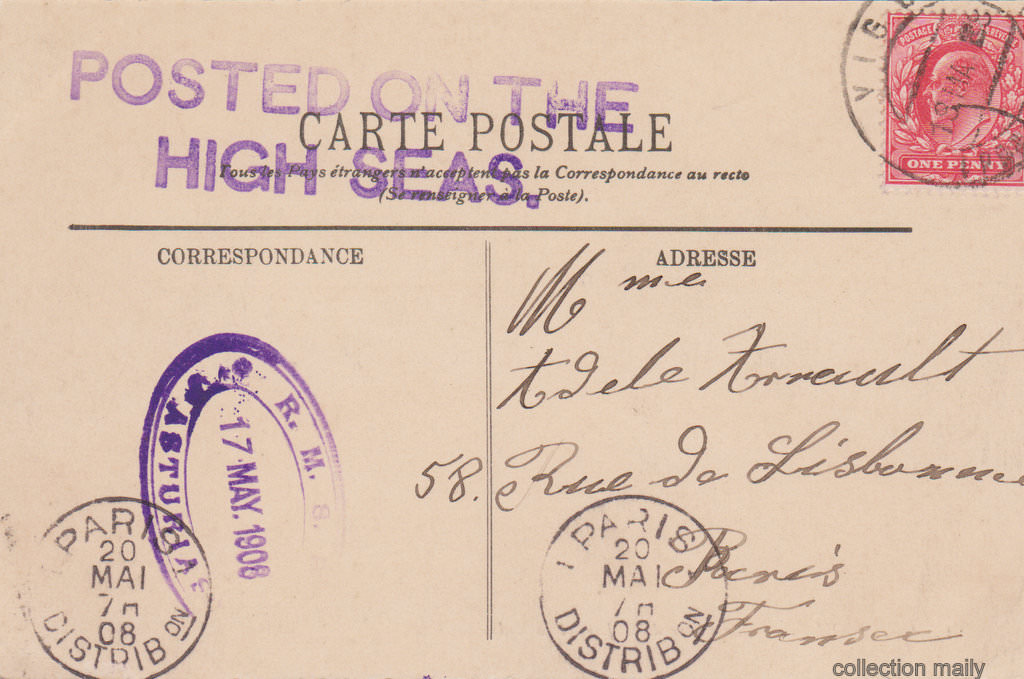 POSTED ON THE
HIGH SEAS.
CARTE POSTALE
Tous les Pays étrangers n'acceptent pas la Correspondance au recto
(Se renseigner à la Poste).
VIGO
POSTAGE REVENUE
ONE PENNY
CORRESPONDANCE
ADRESSE
Mme
Adele Arrault
58. Rue de Lisbonne
Paris
France
R. M. S.
ASTURIAS
17 MAY. 1908
PARIS
20
MAI
7 H
08
DISTRIBON
1 PARIS
20
MAI
7 H
08
DISTRIBON
collection maily